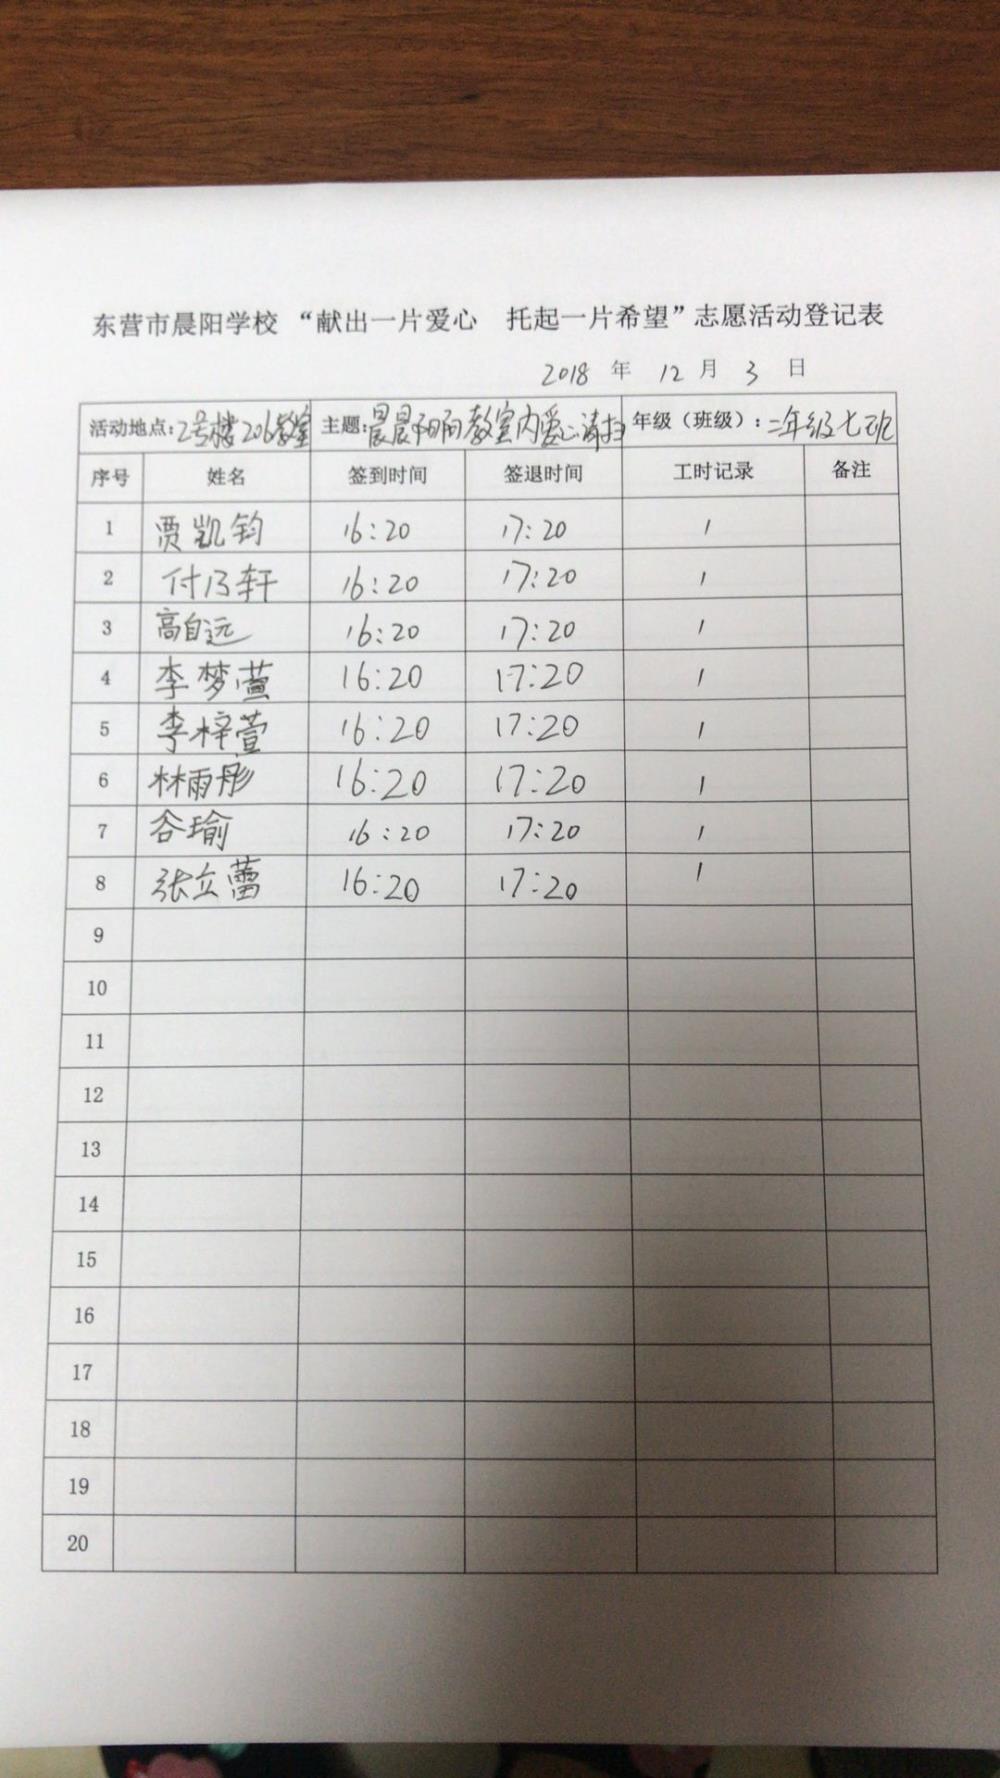 东营市晨阳学校 “献出一片爱心 托起一片希望”志愿活动登记表
2018 年 12 月 3 日
活动地点:2号楼206教室 主题: 教室内爱心清扫 年级（班级）:二年级七班
序号 姓名 签到时间 签退时间 工时记录 备注
1 贾凯钧 16:20 17:20 1
2 付乃轩 16:20 17:20 1
3 高自远 16:20 17:20 1
4 李梦萱 16:20 17:20 1
5 李梓萱 16:20 17:20 1
6 林雨彤 16:20 17:20 1
7 谷瑜 16:20 17:20 1
8 张立蕾 16:20 17:20 1
9
10
11
12
13
14
15
16
17
18
19
20